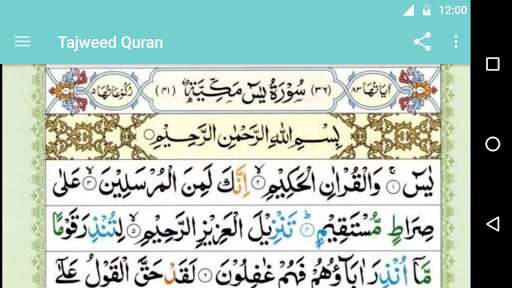 12:00
Tajweed Quran
اٰیَاتُهَا ۸۳ (۳۶) سُوْرَةُ يٰسٓ مَكِّيَّةٌ (۴۱) رُكُوْعَاتُهَا ۵
بِسْمِ اللّٰهِ الرَّحْمٰنِ الرَّحِيْمِ
يٰسٓ ۱ وَالْقُرْاٰنِ الْحَكِيْمِ ۲ اِنَّكَ لَمِنَ الْمُرْسَلِيْنَ ۳ عَلٰى
صِرَاطٍ مُّسْتَقِيْمٍ ۴ تَنْزِيْلَ الْعَزِيْزِ الرَّحِيْمِ ۵ لِتُنْذِرَ قَوْمًا
مَّآ اُنْذِرَ اٰبَآؤُهُمْ فَهُمْ غٰفِلُوْنَ ۶ لَقَدْ حَقَّ الْقَوْلُ عَلٰٓى